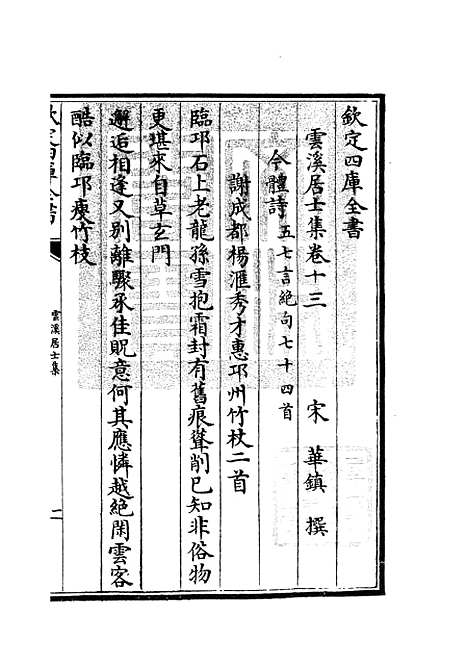 欽定四庫全書
雲溪居士集卷十三
宋 華鎮 撰
今體詩五七言絶句七十四首
謝成都楊滙秀才惠邛州竹杖二首
臨邛石上老龍孫雪抱霜封有舊痕聳削已知非俗物
更堪來自草玄門
邂逅相逢又别離驟承佳貺意何其應憐越絶閑雲客
酷似臨邛瘦竹枝
雲溪居士集
一